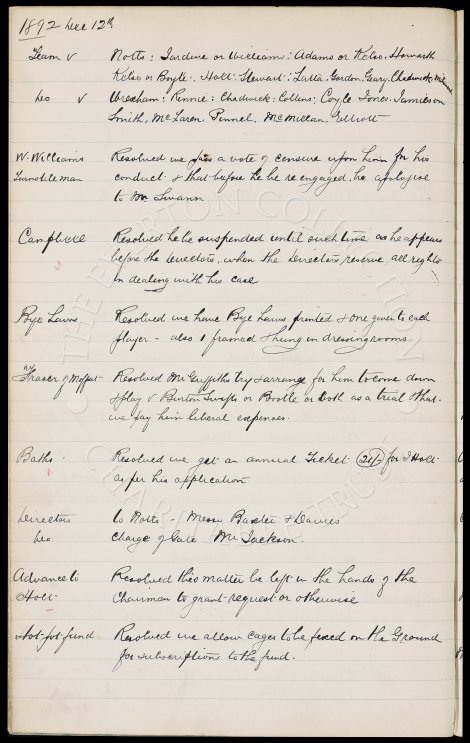 1892 Dec 12th
Team v Notts: Jardine or Williams: Adams or Kelso, Howarth
Kelso or Boyle. Holt. Stewart: Latta, Gordon, Geary, Chadwick, Milward
Do v Wrexham: Rennie: Chadwick: Collins: Coyle Jones. Jamieson
Smith, McLaren. Pinnel, McMillan, Elliott
W. Williams Resolved we pass a vote of censure upon him for his
Turnstile man conduct & that before he be re engaged, he apologise
to Mr Swann
Campbell Resolved he be suspended until such time as he appears
before the Directors, when the Directors, reserve all rights
in dealing with his case
Bye Laws Resolved we have Bye Laws printed & one given to each
player - also 1 framed & hung in dressing rooms
Fraser of Moffat Resolved Mr Griffiths try & arrange for him to come down
& play v Burton Swifts or Bootle or both as a trial & that
we pay him liberal expenses.
Baths. Resolved we get an annual Ticket (21/-) for J Holt
as per his application
Directors to Notts - Messrs Baxter & Davies
Do Charge of Gate Mr Jackson.
Advance to Resolved this matter be left in the hands of the
Holt Chairman to grant request or otherwise
Hot-pot fund Resolved we allow cages to be fixed on the Ground
for subscriptions to the fund.
THE EVERTON COLLECTION
CHARITABLE TRUST